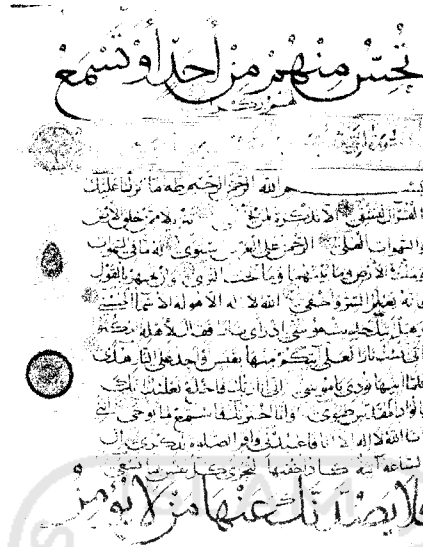 تُحِسُّ مِنْهُمْ مِنْ أَحَدٍ أَوْ تَسْمَعُ
لهم ركزا
بسم الله الرحمن الرحيم طه ما نزلنا عليك
القرآن لتشقى الا تذكرة لمن يخشى تنزيلا ممن خلق الارض
والسموات العلى الرحمن على العرش استوى له ما في السموات
وما في الارض وما بينهما وما تحت الثرى وان تجهر بالقول
فانه يعلم السر واخفى الله لا اله الا هو له الاسماء الحسنى
وهل اتيك حديث موسى اذ راى نارا فقال لاهله امكثوا
انى انست نارا لعلى اتيكم منها بقبس او اجد على النار هدى
فلما اتيها نودى يا موسى انى انا ربك فاخلع نعليك انك
بالواد المقدس طوى وانا اخترتك فاستمع لما يوحى اننى
انا الله لا اله الا انا فاعبدنى واقم الصلوة لذكرى ان
الساعة اتية اكاد اخفيها لتجزى كل نفس بما تسعى
فَلَا يَصُدَّنَّكَ عَنْهَا مَنْ لَا يُؤْمِنُ